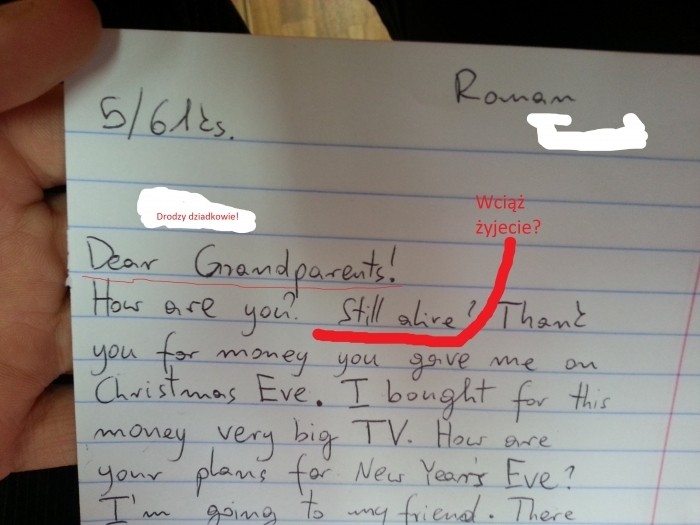 Roman
5/6 lks.
Drodzy dziadkowie!
Wciąż
żyjecie?
Dear Grandparents!
How are you? Still alive? Thank
you for money you gave me on
Christmas Eve. I bought for this
money very big TV. How are
your plans for New Year's Eve?
I'm going to my friend. There